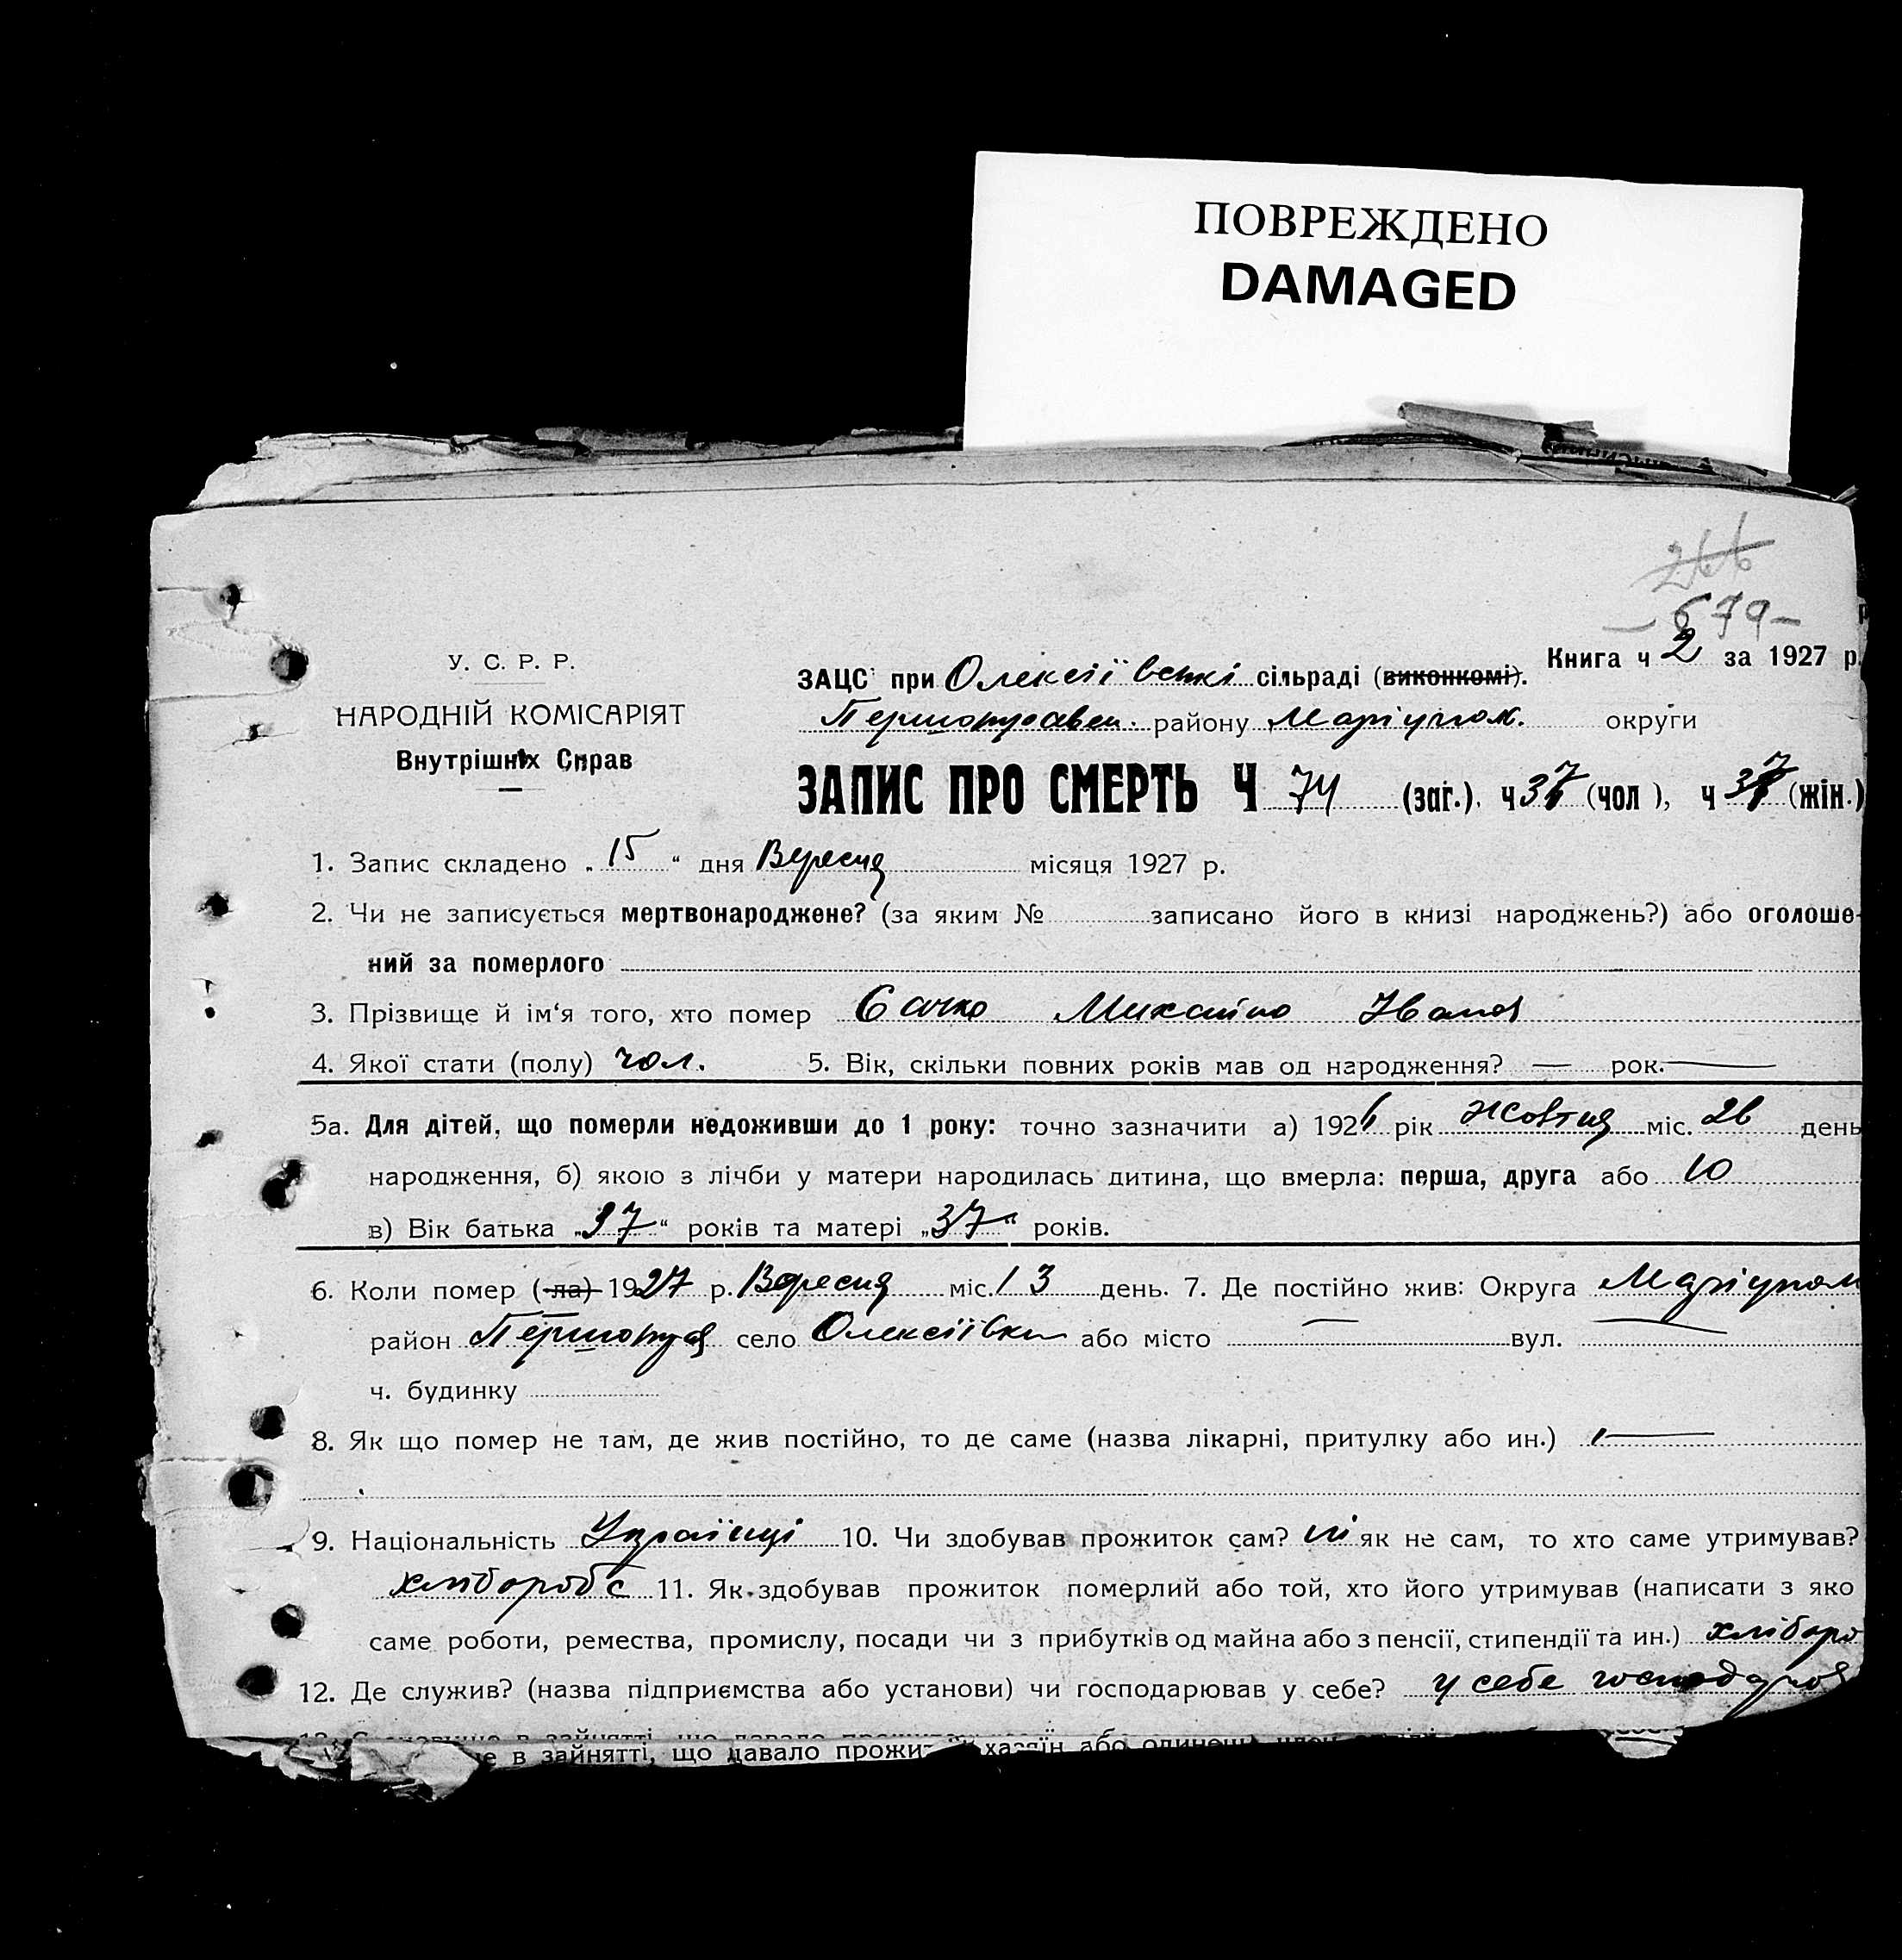 ПОВРЕЖДЕНО
DAMAGED
266
— 679 —
Книга ч 2 за 1927 р.
У. С. Р. Р.
НАРОДНІЙ КОМІСАРІЯТ
Внутрішніх Справ
ЗАЦС при Олексіївські сільраді (виконкомі).
Першотравен. району Маріупол. округи
ЗАПИС ПРО СМЕРТЬ Ч 74 (заг.), ч 37 (чол), ч 37 (жін.)
1. Запис складено „15“ дня Вересня місяця 1927 р.
2. Чи не записується мертвонароджене? (за яким № записано його в книзі народжень?) або оголоше-
ний за померлого
3. Прізвище й ім‘я того, хто помер Сачко Михайло Іванов
4. Якої стати (полу) чол. 5. Вік, скільки повних років мав од народження? — рок. —
5а. Для дітей, що померли недоживши до 1 року: точно зазначити а) 1926 рік Жовтня міс. 26 день
народження, б) якою з лічби у матери народилась дитина, що вмерла: перша, друга або 10
в) Вік батька „37“ років та матері „37“ років.
6. Коли помер (-ла) 1927 р. Вересня міс. 13 день. 7. Де постійно жив: Округа Маріупол
район Першотрав село Олексіївки або місто — вул. —
ч. будинку
8. Як що помер не там, де жив постійно, то де саме (назва лікарні, притулку або ин.) —
9. Національність Українці 10. Чи здобував прожиток сам? ні як не сам, то хто саме утримував?
хліборобс 11. Як здобував прожиток померлий або той, хто його утримував (написати з яко
саме роботи, ремества, промислу, посади чи з прибутків од майна або з пенсії, стипендії та ин.) хліборо
12. Де служив? (назва підприємства або установи) чи господарював у себе? у себе господарюв
в зайнятті, що давало прожи